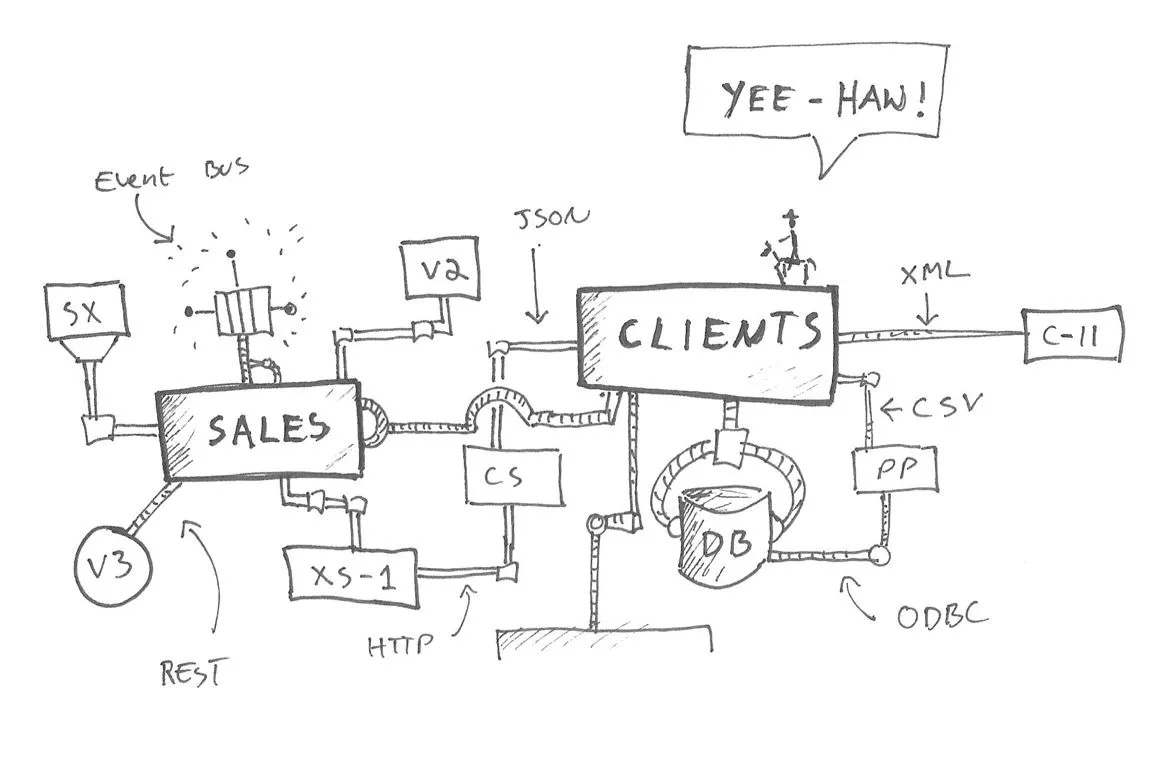 YEE-HAW!
Event Bus
JSON
SX
V2
XML
CLIENTS
C-11
SALES
CSV
CS
PP
V3
XS-1
DB
HTTP
ODBC
REST